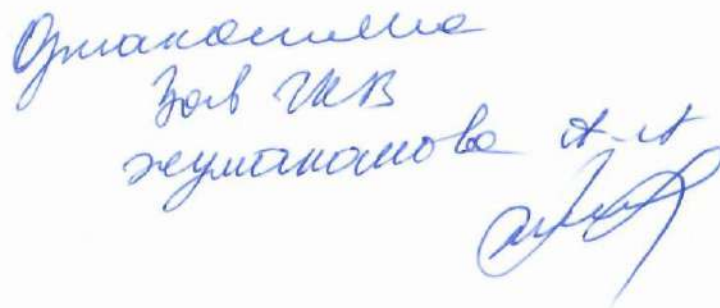 Ознакомлена
Зав УКВ
Жумаканова А.А